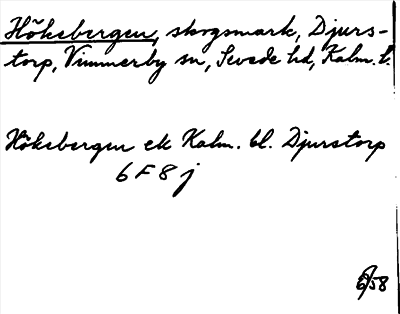 Hökebergen, skogsmark, Djurs-
torp, Vimmerby sn, Sevede hd, Kalm. l.
Hökebergen ek Kalm. bl. Djurstorp
6 F 8 j
6/58